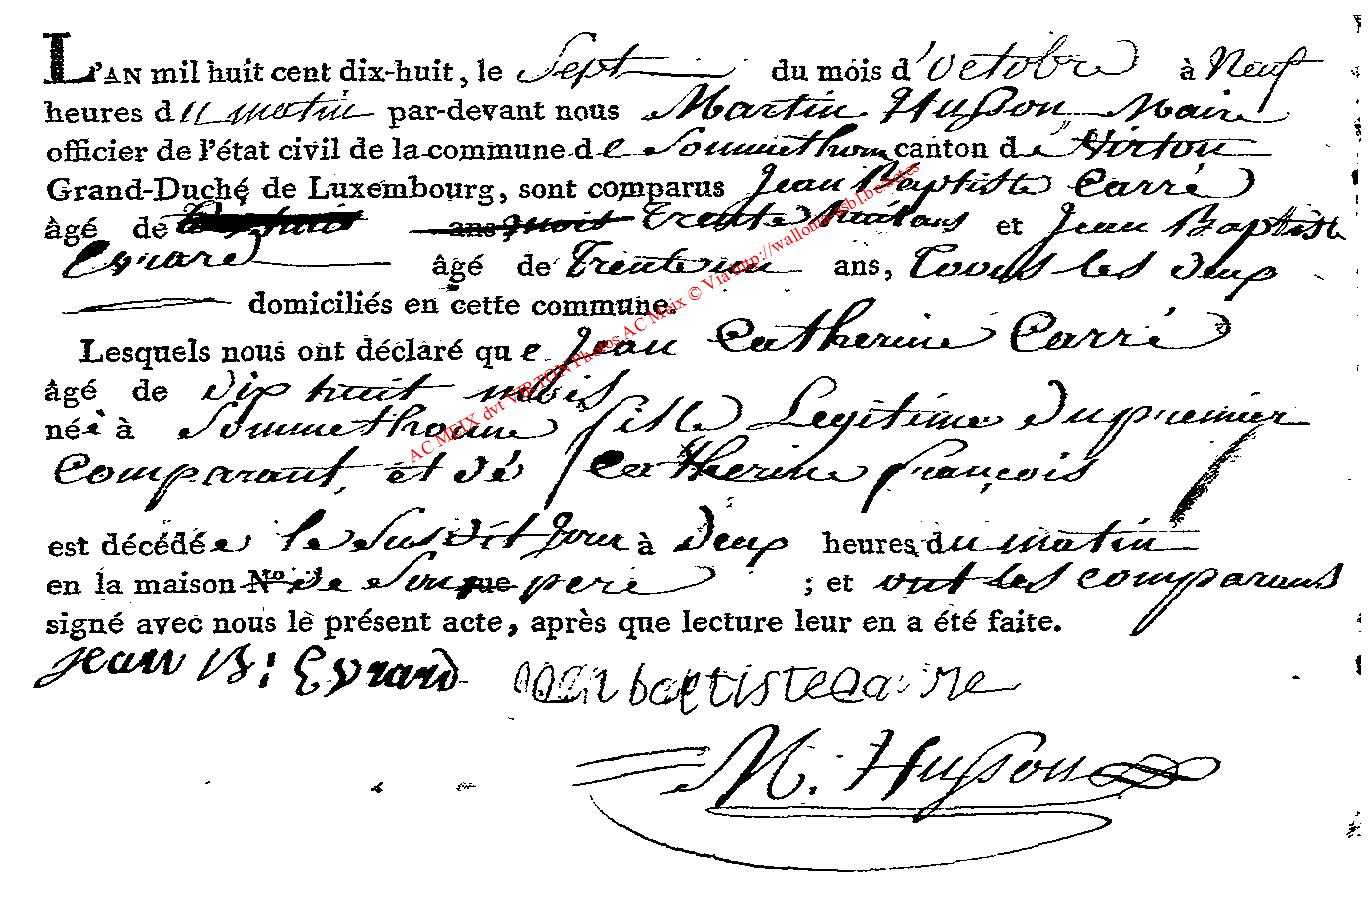 L'AN mil huit cent dix-huit, le Sept du mois d'octobre à Neuf
heures du matin par-devant nous Martin Husson Maire
officier de l'état civil de la commune de Sommethonne canton de Virton
Grand-Duché de Luxembourg, sont comparus Jean Baptiste Carré
âgé de ans mois trente huit ans et Jean Baptiste
Evrard âgé de Trente un ans, Tous les deux
domiciliés en cette commune.
Lesquels nous ont déclaré que Jean Catherine Carré
âgé de dix huit mois
née à Sommethonne fille Legitime du premier
Comparant, et de Catherine françois
est décédée le Susdit Jour à Deux heures du matin
en la maison No de Son rue pere ; et ont les comparans
signé avec nous le présent acte, après que lecture leur en a été faite.
Jean B: Evrard Jean baptiste
M. Husson
AC MEIX dvt VIRTON Photos AC Meix © Via http://wallonia-asbl.be/actes